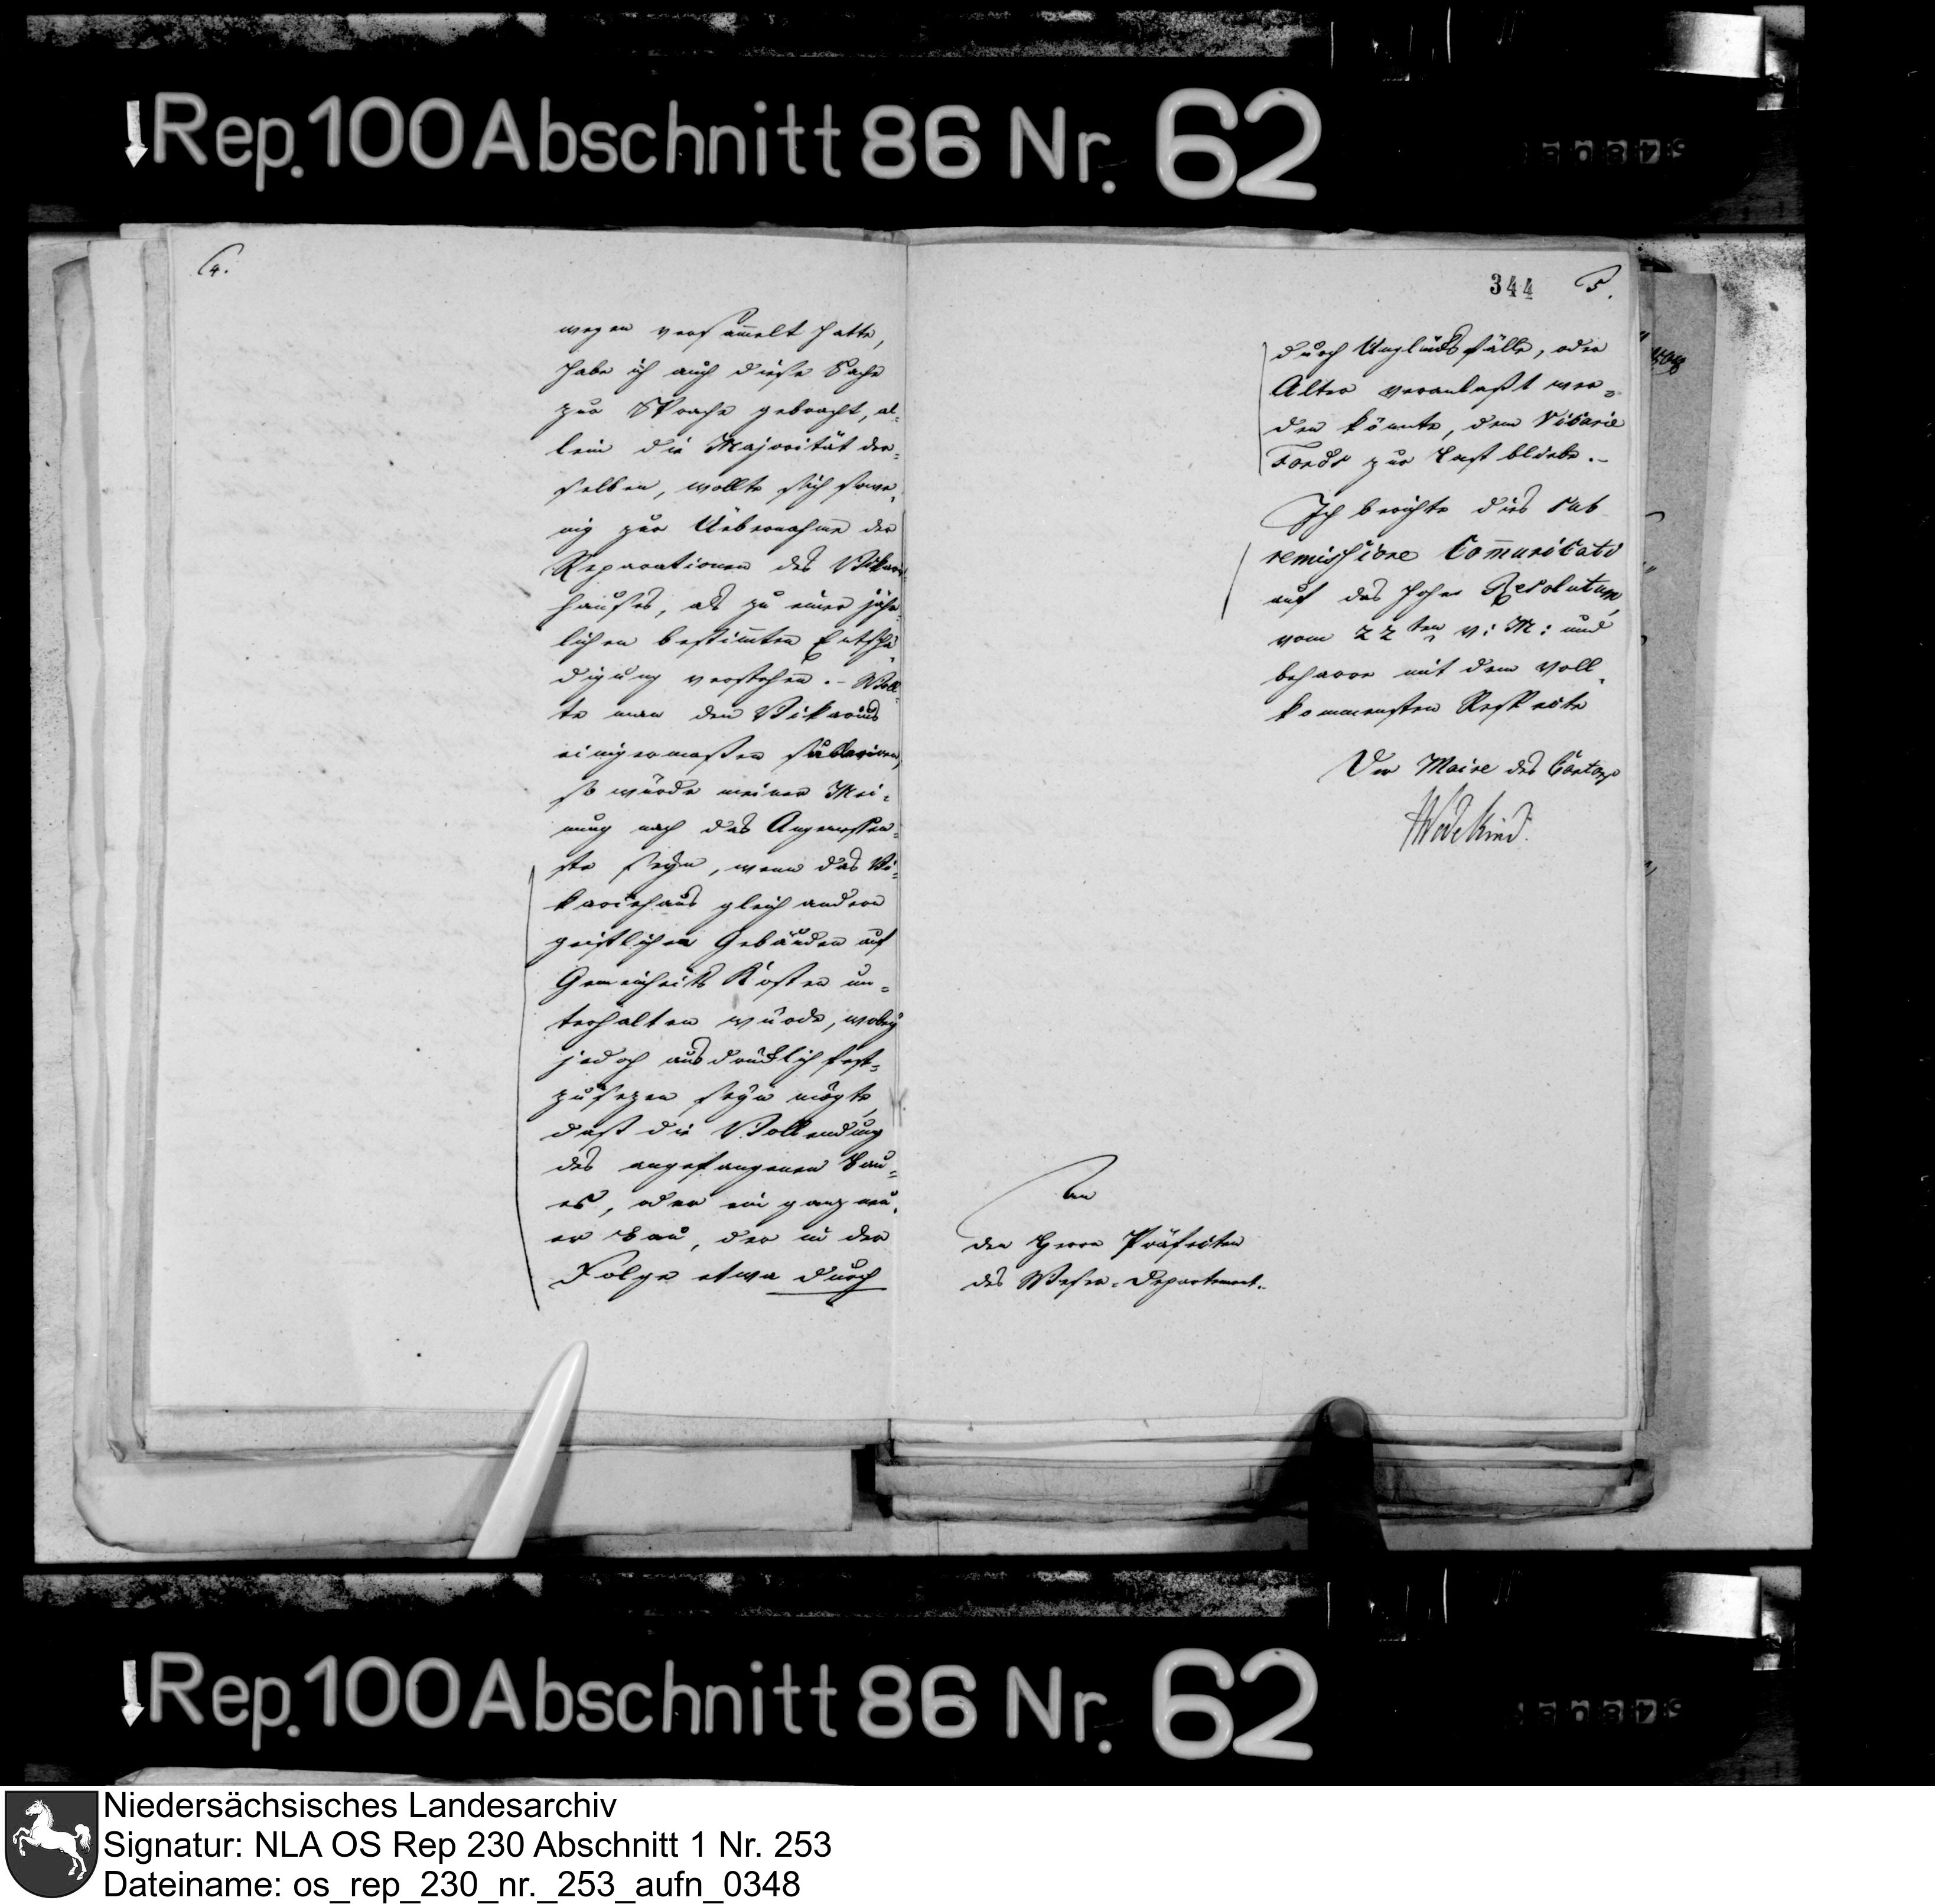 Rep. 100 Abschnitt 86 Nr. 62
4.
wegen versam̅elt hatte,
habe ich auch diese Sache
zur Sprache gebracht, al-
lein die Majorität der-
selben, wollte sich so we-
nig zur Uebernahme der
Reparationen des Vikari-
hauses, als zu einer jähr-
lichen bestim̅ten Entschä-
digung verstehen. - Woll-
te man den Vikarius
einigermaßen
so würde meiner Mei-
nung nach das Angemessen-
ste seyn, wenn das Vi-
kariehaus gleich andern
geistlichen Gebäuden auf
Gemeinheits Kosten un-
terhalten würde, wobey
jedoch ausdrücklich fest-
zusezen seyn mögte,
daß die Vollendung
des angefangenen Bau-
es, oder ein ganz neu-
er Bau, der in der
Folge etwa durch
344
5.
durch Unglücksfälle, oder
Alter veranlaßt wer-
den könnte, dem Vicarie
Fonds zur Last bliebe. -
Ich berichte dies sub
remissione Com̅unicati
auf das hohe Resolutum
vom 22ten v: M: und
beharre mit dem voll-
kommensten Respecte
Der Maire des Cantons
Wedekind.
An
den Herrn Präfecten
des Weser-Departement.
Rep. 100 Abschnitt 86 Nr. 62
Niedersächsisches Landesarchiv
Signatur: NLA OS Rep 230 Abschnitt 1 Nr. 253
Dateiname: os_rep_230_nr._253_aufn_0348